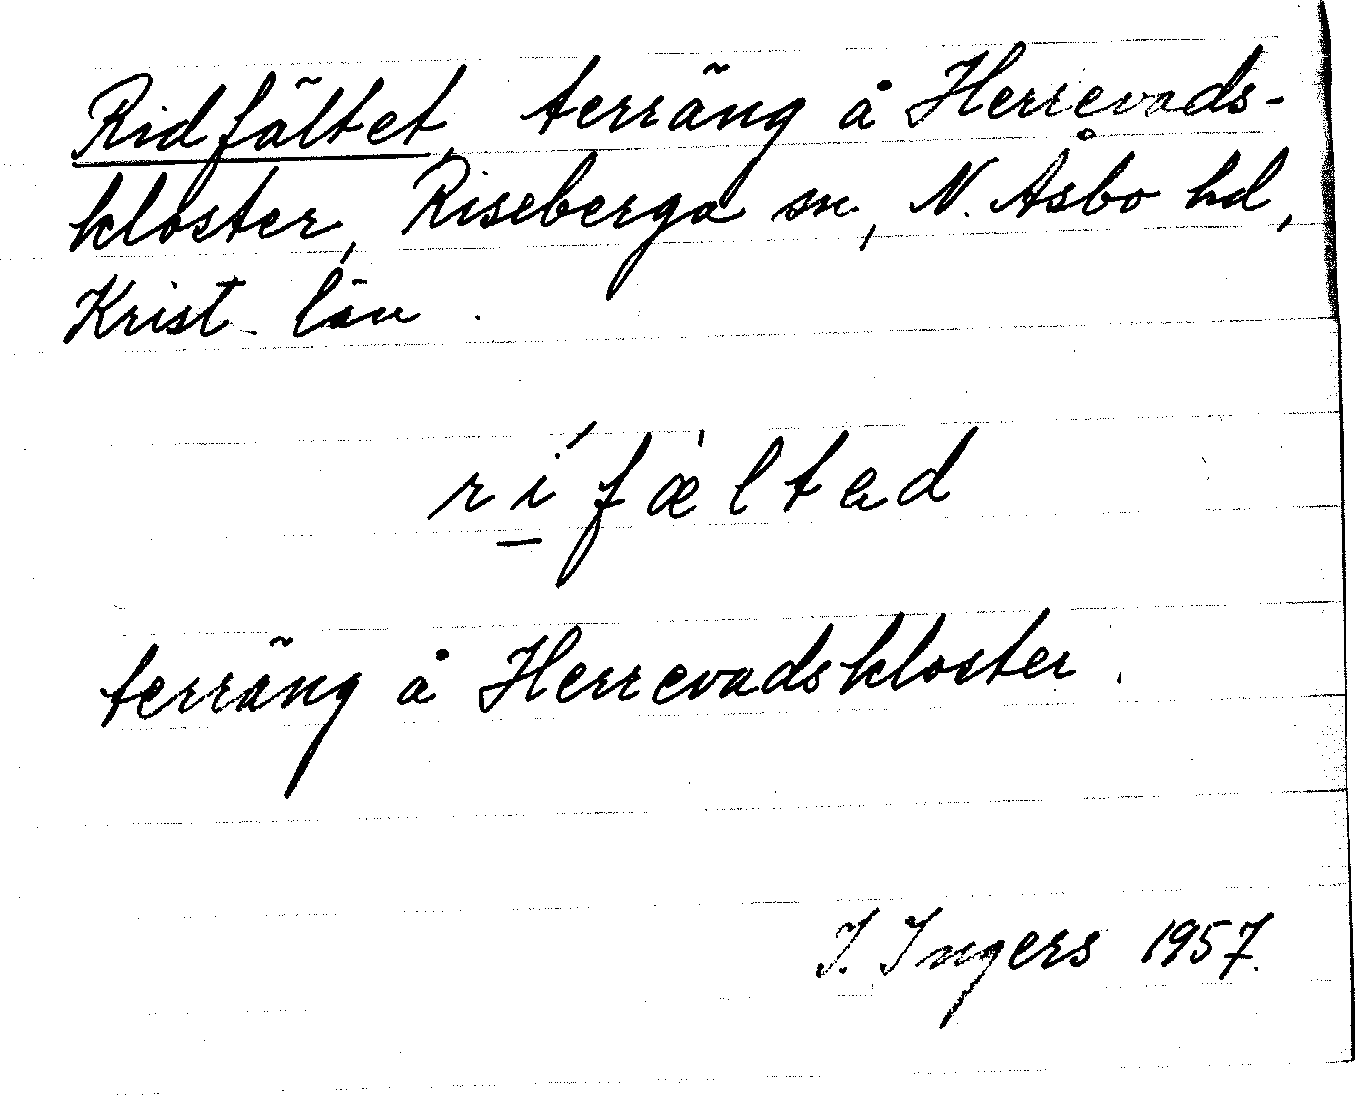 Ridfältet, terräng å Herrevads-
kloster, Riseberga sn, N. Åsbo hd,
Krist. län.
rí̱fæ̀ltad
terräng å Herrevadskloster.
I. Ingers 1957.